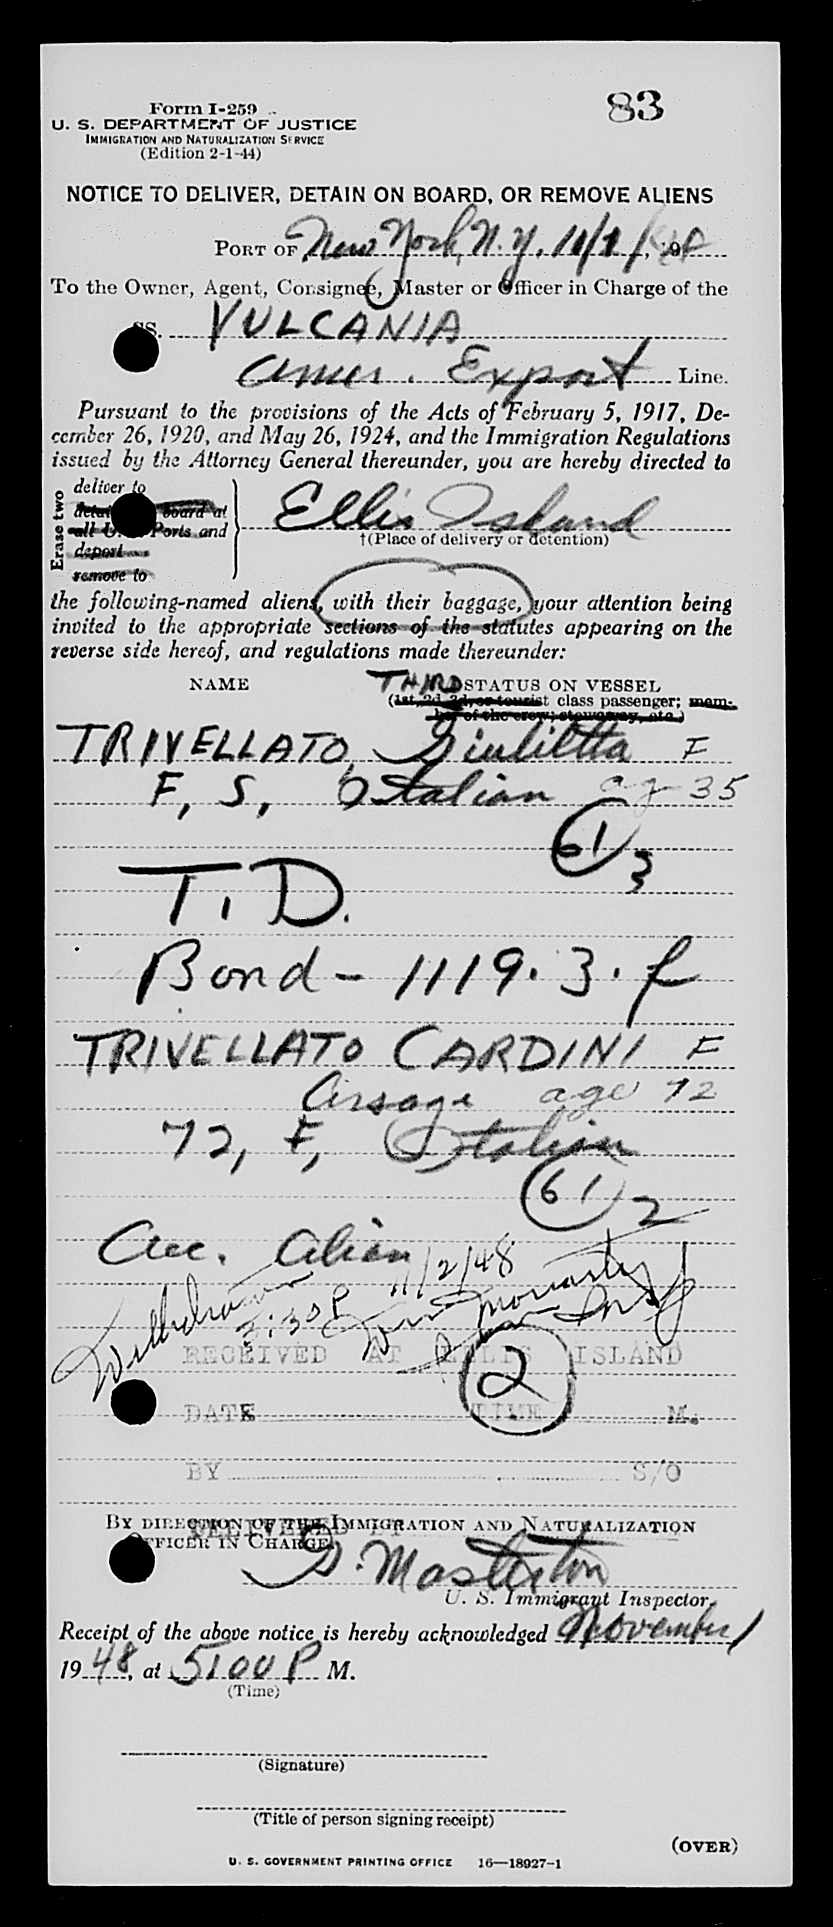 83
Form I-259
U. S. DEPARTMENT OF JUSTICE
IMMIGRATION AND NATURALIZATION SERVICE
(Edition 2-1-44)
NOTICE TO DELIVER, DETAIN ON BOARD, OR REMOVE ALIENS
PORT OF New York, N.Y. 11/1/48
To the Owner, Agent, Consignee, Master or Officer in Charge of the
SS. VULCANIA
Amer. Export Line.
Pursuant to the provisions of the Acts of February 5, 1917, De-
cember 26, 1920, and May 26, 1924, and the Immigration Regulations
issued by the Attorney General thereunder, you are hereby directed to
Erase two
deliver to
board at
all U. Ports and
deport
remove to
Ellis Island
†(Place of delivery or detention)
the following-named aliens, with their baggage, your attention being
invited to the appropriate sections of the statutes appearing on the
reverse side hereof, and regulations made thereunder:
NAME THIRD STATUS ON VESSEL
(1st, 2d, 3d, or tourist class passenger; mem-
ber of the crew; stowaway, etc.)
TRIVELLATO, Giulietta F
F, S, Italian ag 35
61 3
T. D.
Bond - 1119.3.f
TRIVELLATO CARDINI F
age 72
72, F, Italian
61 2
Acc. Alien
Withdrawn 3:30 P 11/2/48
RECEIVED AT ELLIS ISLAND
2
DATE TIME M.
BY S/O
BY DIRECTION OF THE IMMIGRATION AND NATURALIZATION
OFFICER IN CHARGE
DELIVERED BY
G. Masterton
U. S. Immigrant Inspector.
Receipt of the above notice is hereby acknowledged November 1
19 48, at 5:00 P M.
(Time)
(Signature)
(Title of person signing receipt)
(OVER)
U. S. GOVERNMENT PRINTING OFFICE 16—18927-1